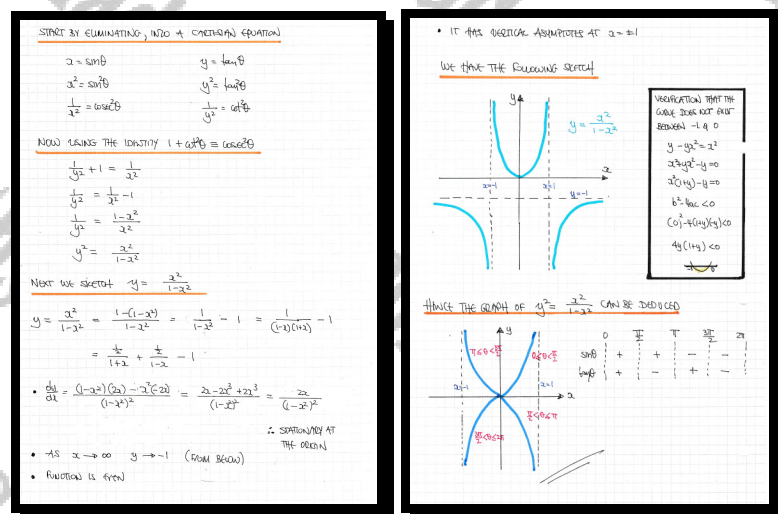 START BY ELIMINATING, INTO A CARTESIAN EQUATION
x = sinθ y = tanθ
x² = sin²θ y² = tan²θ
1/x² = cosec²θ 1/y² = cot²θ
NOW USING THE IDENTITY 1 + cot²θ ≡ cosec²θ
1/y² + 1 = 1/x²
1/y² = 1/x² - 1
1/y² = (1-x²)/x²
y² = x²/(1-x²)
NEXT WE SKETCH y = x²/(1-x²)
y = x²/(1-x²) = (1-(1-x²))/(1-x²) = 1/(1-x²) - 1 = 1/((1-x)(1+x)) - 1
= ½/(1+x) + ½/(1-x) - 1
• dy/dx = ((1-x²)(2x) - x²(-2x))/(1-x²)² = (2x-2x³+2x³)/(1-x²)² = 2x/(1-x²)²
∴ STATIONARY AT
THE ORIGIN
• AS x → ∞ y → -1 (FROM BELOW)
• FUNCTION IS EVEN
• IT HAS VERTICAL ASYMPTOTES AT x = ±1
WE HAVE THE FOLLOWING SKETCH
y
y = x²/(1-x²)
x
x=-1
x=1
y=-1
VERIFICATION THAT THE
CURVE DOES NOT EXIST
BETWEEN -1 & 0
y - yx² = x²
x²+yx²-y=0
x²(1+y)-y=0
b²-4ac<0
(0)²-4(1+y)(-y)<0
4y(1+y)<0
-1 0
HENCE THE GRAPH OF y² = x²/(1-x²) CAN BE DEDUCED
y
π≤θ<3π/2
0≤θ<π/2
x=-1
x=1
x
3π/2<θ≤2π
π/2<θ≤π
0 π/2 π 3π/2 2π
sinθ + + - -
tanθ + - + -